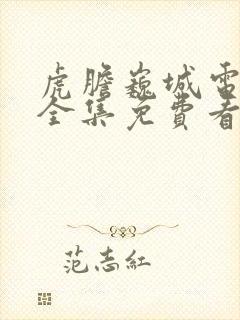 虎膽巍城電
全集免費看
范志紅